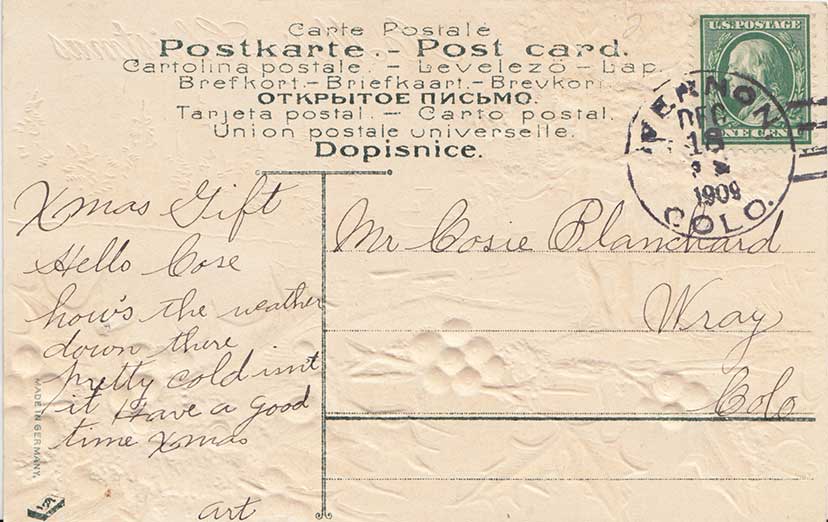 Carte Postale
Postkarte. - Post card.
Cartolina postale. - Levelezö - Lap.
Brefkort. - Briefkaart. - Brevkort.
ОТКРЫТОЕ ПИСЬМО.
Tarjeta postal. - Carto postal.
Union postale universelle.
Dopisnice.
U.S. POSTAGE
ONE CENT
VERNON
DEC
18
1909
COLO.
Xmas Gift
Hello Cose
how's the weather
down there
pretty cold isnt
it Have a good
time Xmas
art
Mr Cosie Blanchard
Wray
Colo
MADE IN GERMANY.